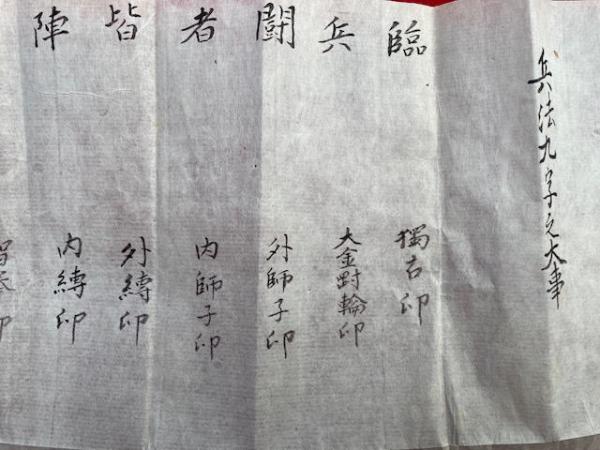 兵法九字之大事
臨
獨古印
兵
大金對輪印
闘
外師子印
者
内師子印
皆
外縛印
陣
内縛印
智拳印